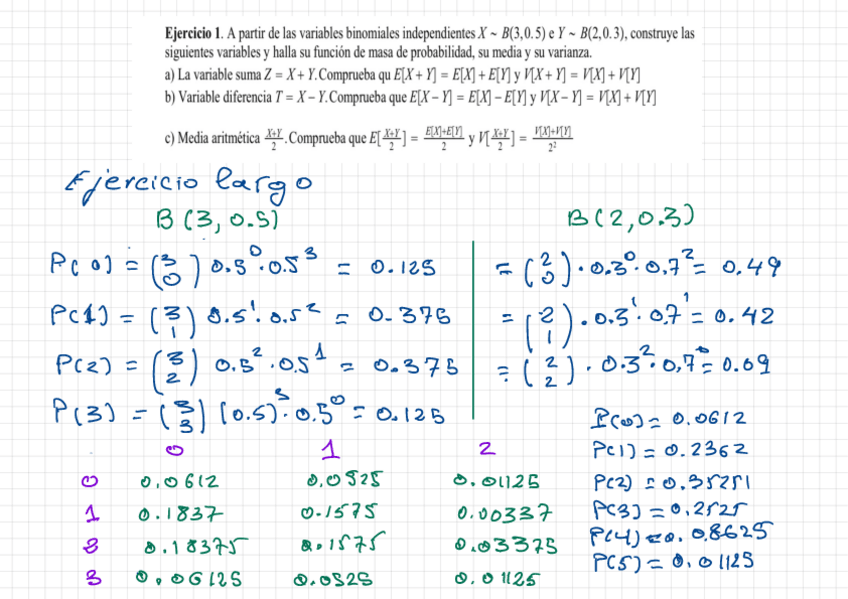 Ejercicio 1. A partir de las variables binomiales independientes X ~ B(3,0.5) e Y ~ B(2,0.3), construye las
siguientes variables y halla su función de masa de probabilidad, su media y su varianza.
a) La variable suma Z = X + Y.Comprueba qu E[X + Y] = E[X] + E[Y] y V[X + Y] = V[X] + V[Y]
b) Variable diferencia T = X − Y.Comprueba que E[X − Y] = E[X] − E[Y] y V[X − Y] = V[X] + V[Y]
c) Media aritmética \frac{X+Y}{2}.Comprueba que E[\frac{X+Y}{2}] = \frac{E[X]+E[Y]}{2} y V[\frac{X+Y}{2}] = \frac{V[X]+V[Y]}{2^2}
Ejercicio largo
B(3, 0.5)
P(0) = \binom{3}{0} 0.5^0 · 0.5^3 = 0.125
P(1) = \binom{3}{1} 0.5^1 · 0.5^2 = 0.375
P(2) = \binom{3}{2} 0.5^2 · 0.5^1 = 0.375
P(3) = \binom{3}{3} (0.5)^3 · 0.5^0 = 0.125
B(2, 0.3)
= \binom{2}{0} · 0.3^0 · 0,7^2 = 0.49
= \binom{2}{1} · 0.3^1 · 0,7^1 = 0.42
= \binom{2}{2} · 0.3^2 · 0,7^0 = 0.09
0 1 2
0 0,0612 0,0525 0.01125
1 0.1837 0.1575 0.00337
2 0.18375 0.1575 0.03375
3 0.06125 0.0525 0.01125
P(0) = 0.0612
P(1) = 0.2362
P(2) = 0,35251
P(3) = 0,2525
P(4) = 0.08625
P(5) = 0,01125